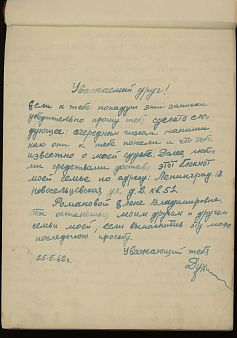 Уважаемый друг!
Если к тебе попадут эти записки
убедительно прошу тебя сделать сле-
дующее: очередным письмом напиши
как они к тебе попали и что тебе
известно о моей судьбе. Далее любы-
ми средствами доставь этот блокнот
моей семье по адресу: Ленинград 18
Новосельцевская ул. д. 2 кв. 52.
Романовой Елене Владимировне.
Ты останешься моим другом и другом
семьи моей, если выполнишь эту мою
последнюю просьбу.
Уважающий тебя
25.6.42г.